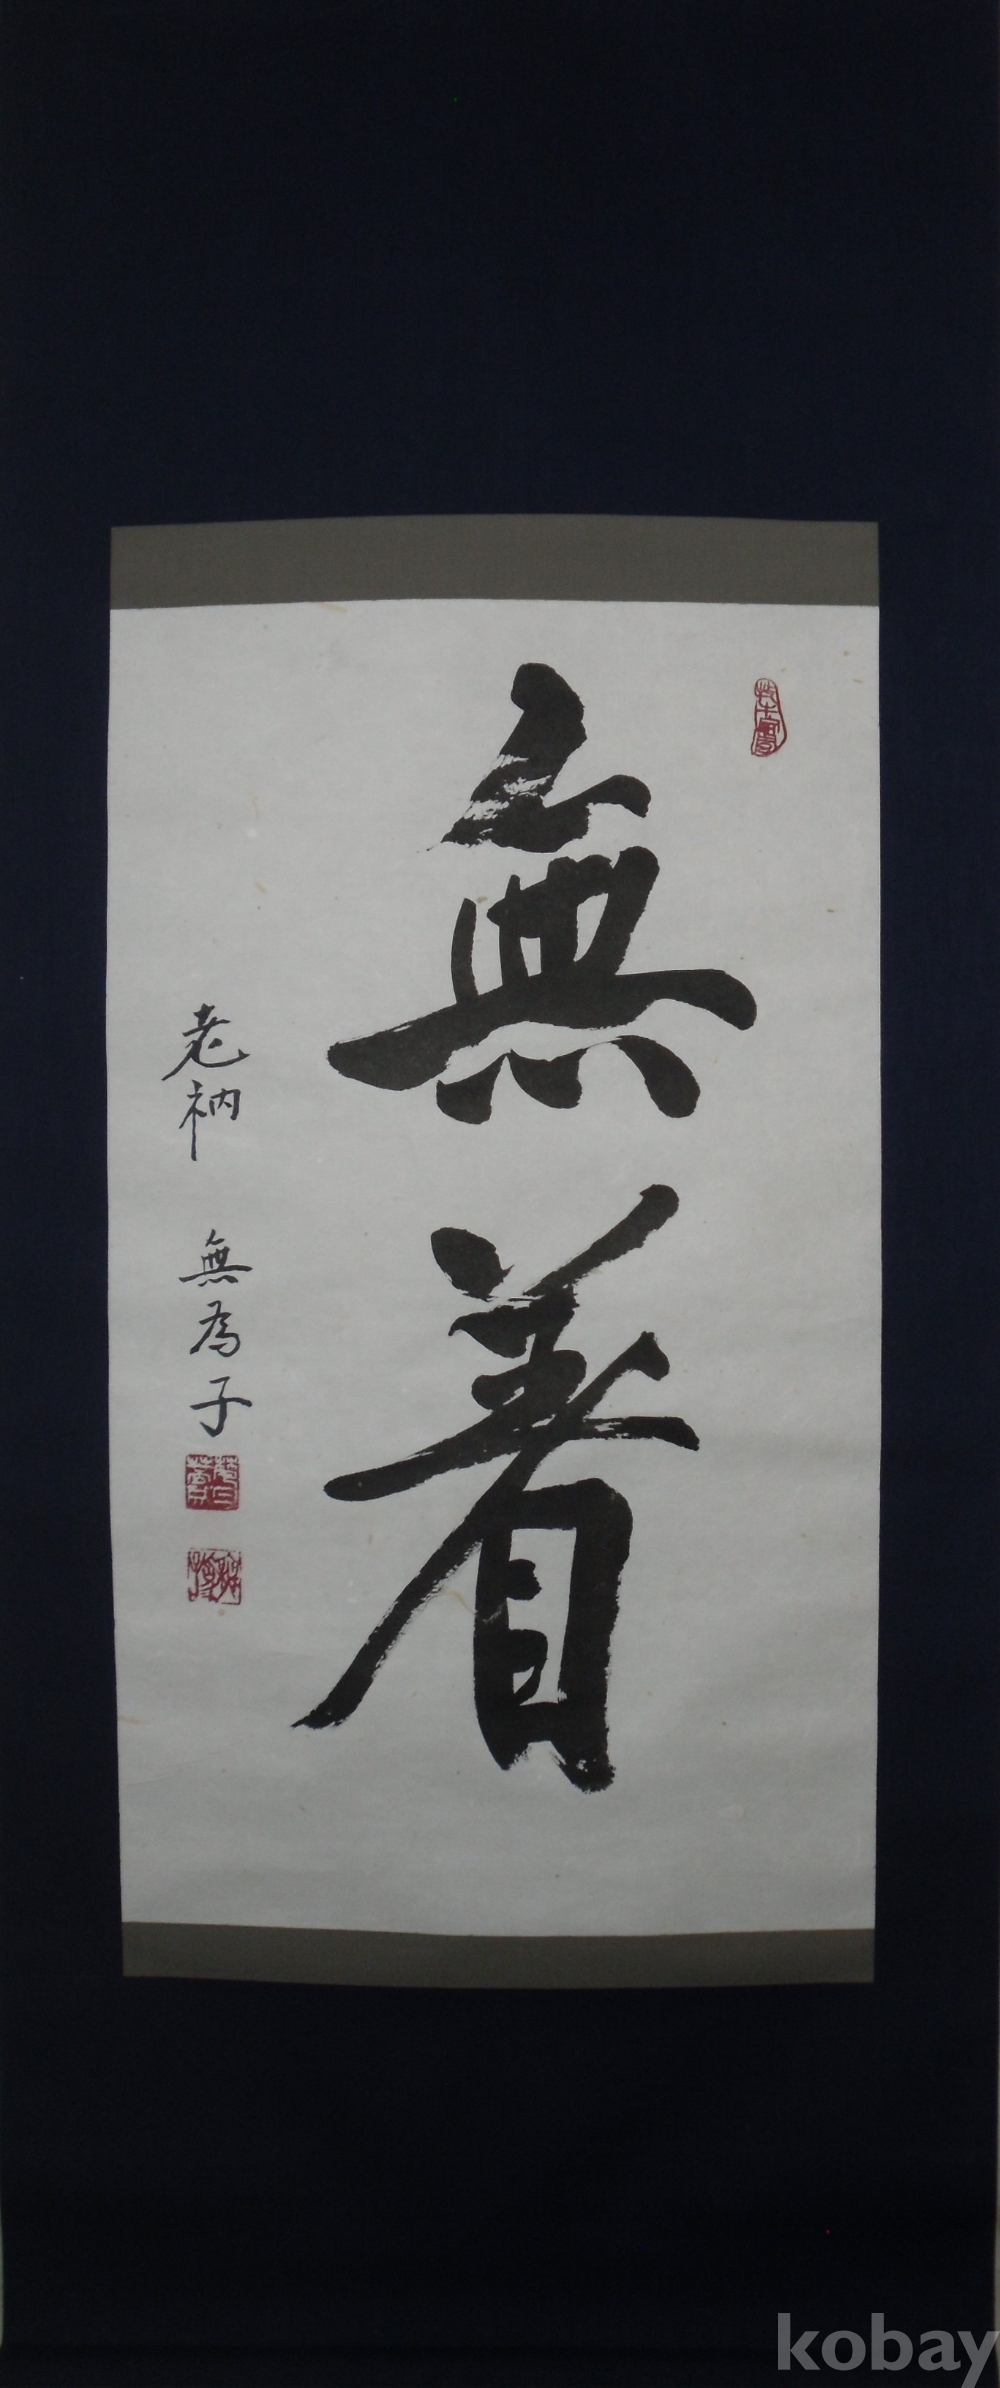 無着
老衲 無為子
kobay